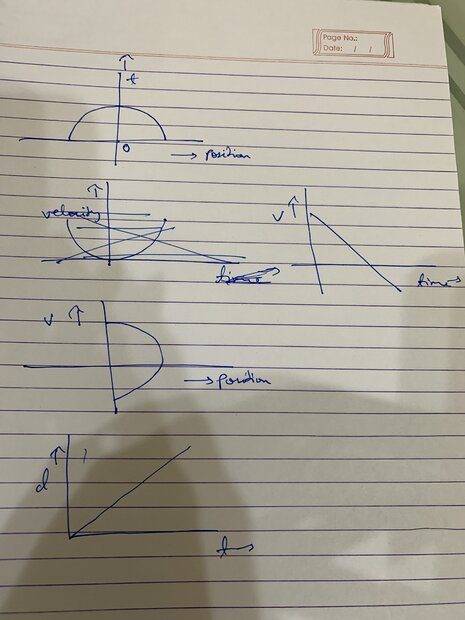 Page No.:
Date: / /
t
0
→ position
velocity
v
time
time
v
→ position
d
t